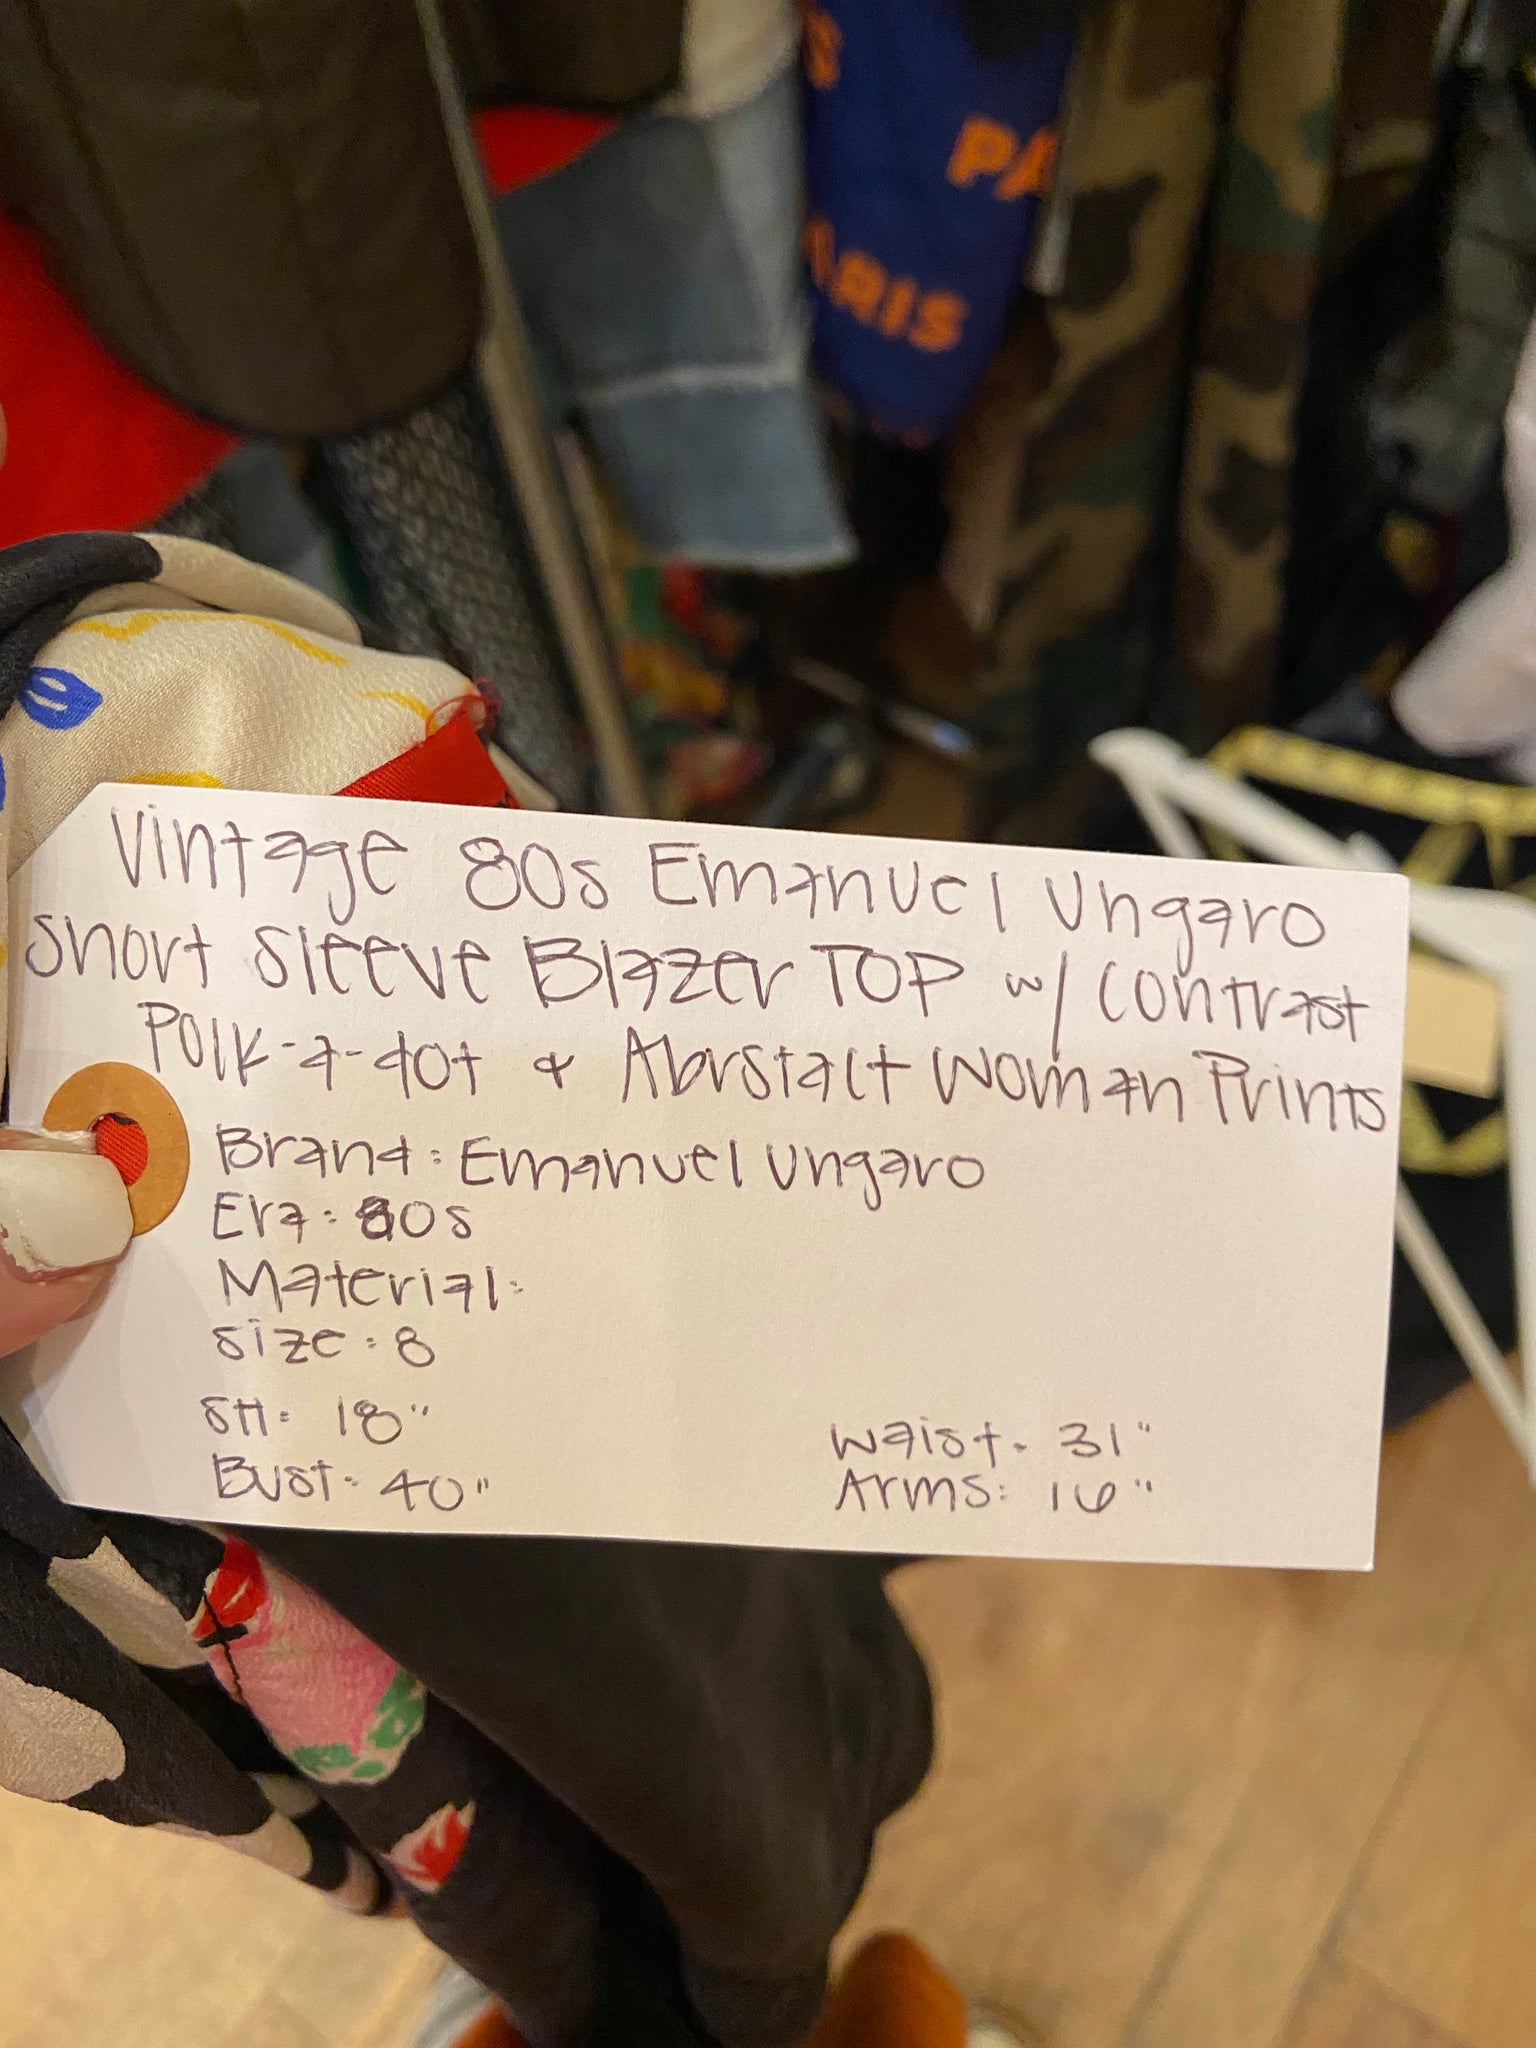 PA
ARIS
Vintage 80s Emanuel Ungaro
Short Sleeve Blazer TOP w/ Contrast
Polk-a-dot & Abrstalt Woman Prints
Brand: Emanuel Ungaro
Era: 80s
Material:
Size: 8
SH: 18"
Bust: 40"
Waist: 31"
Arms: 16"